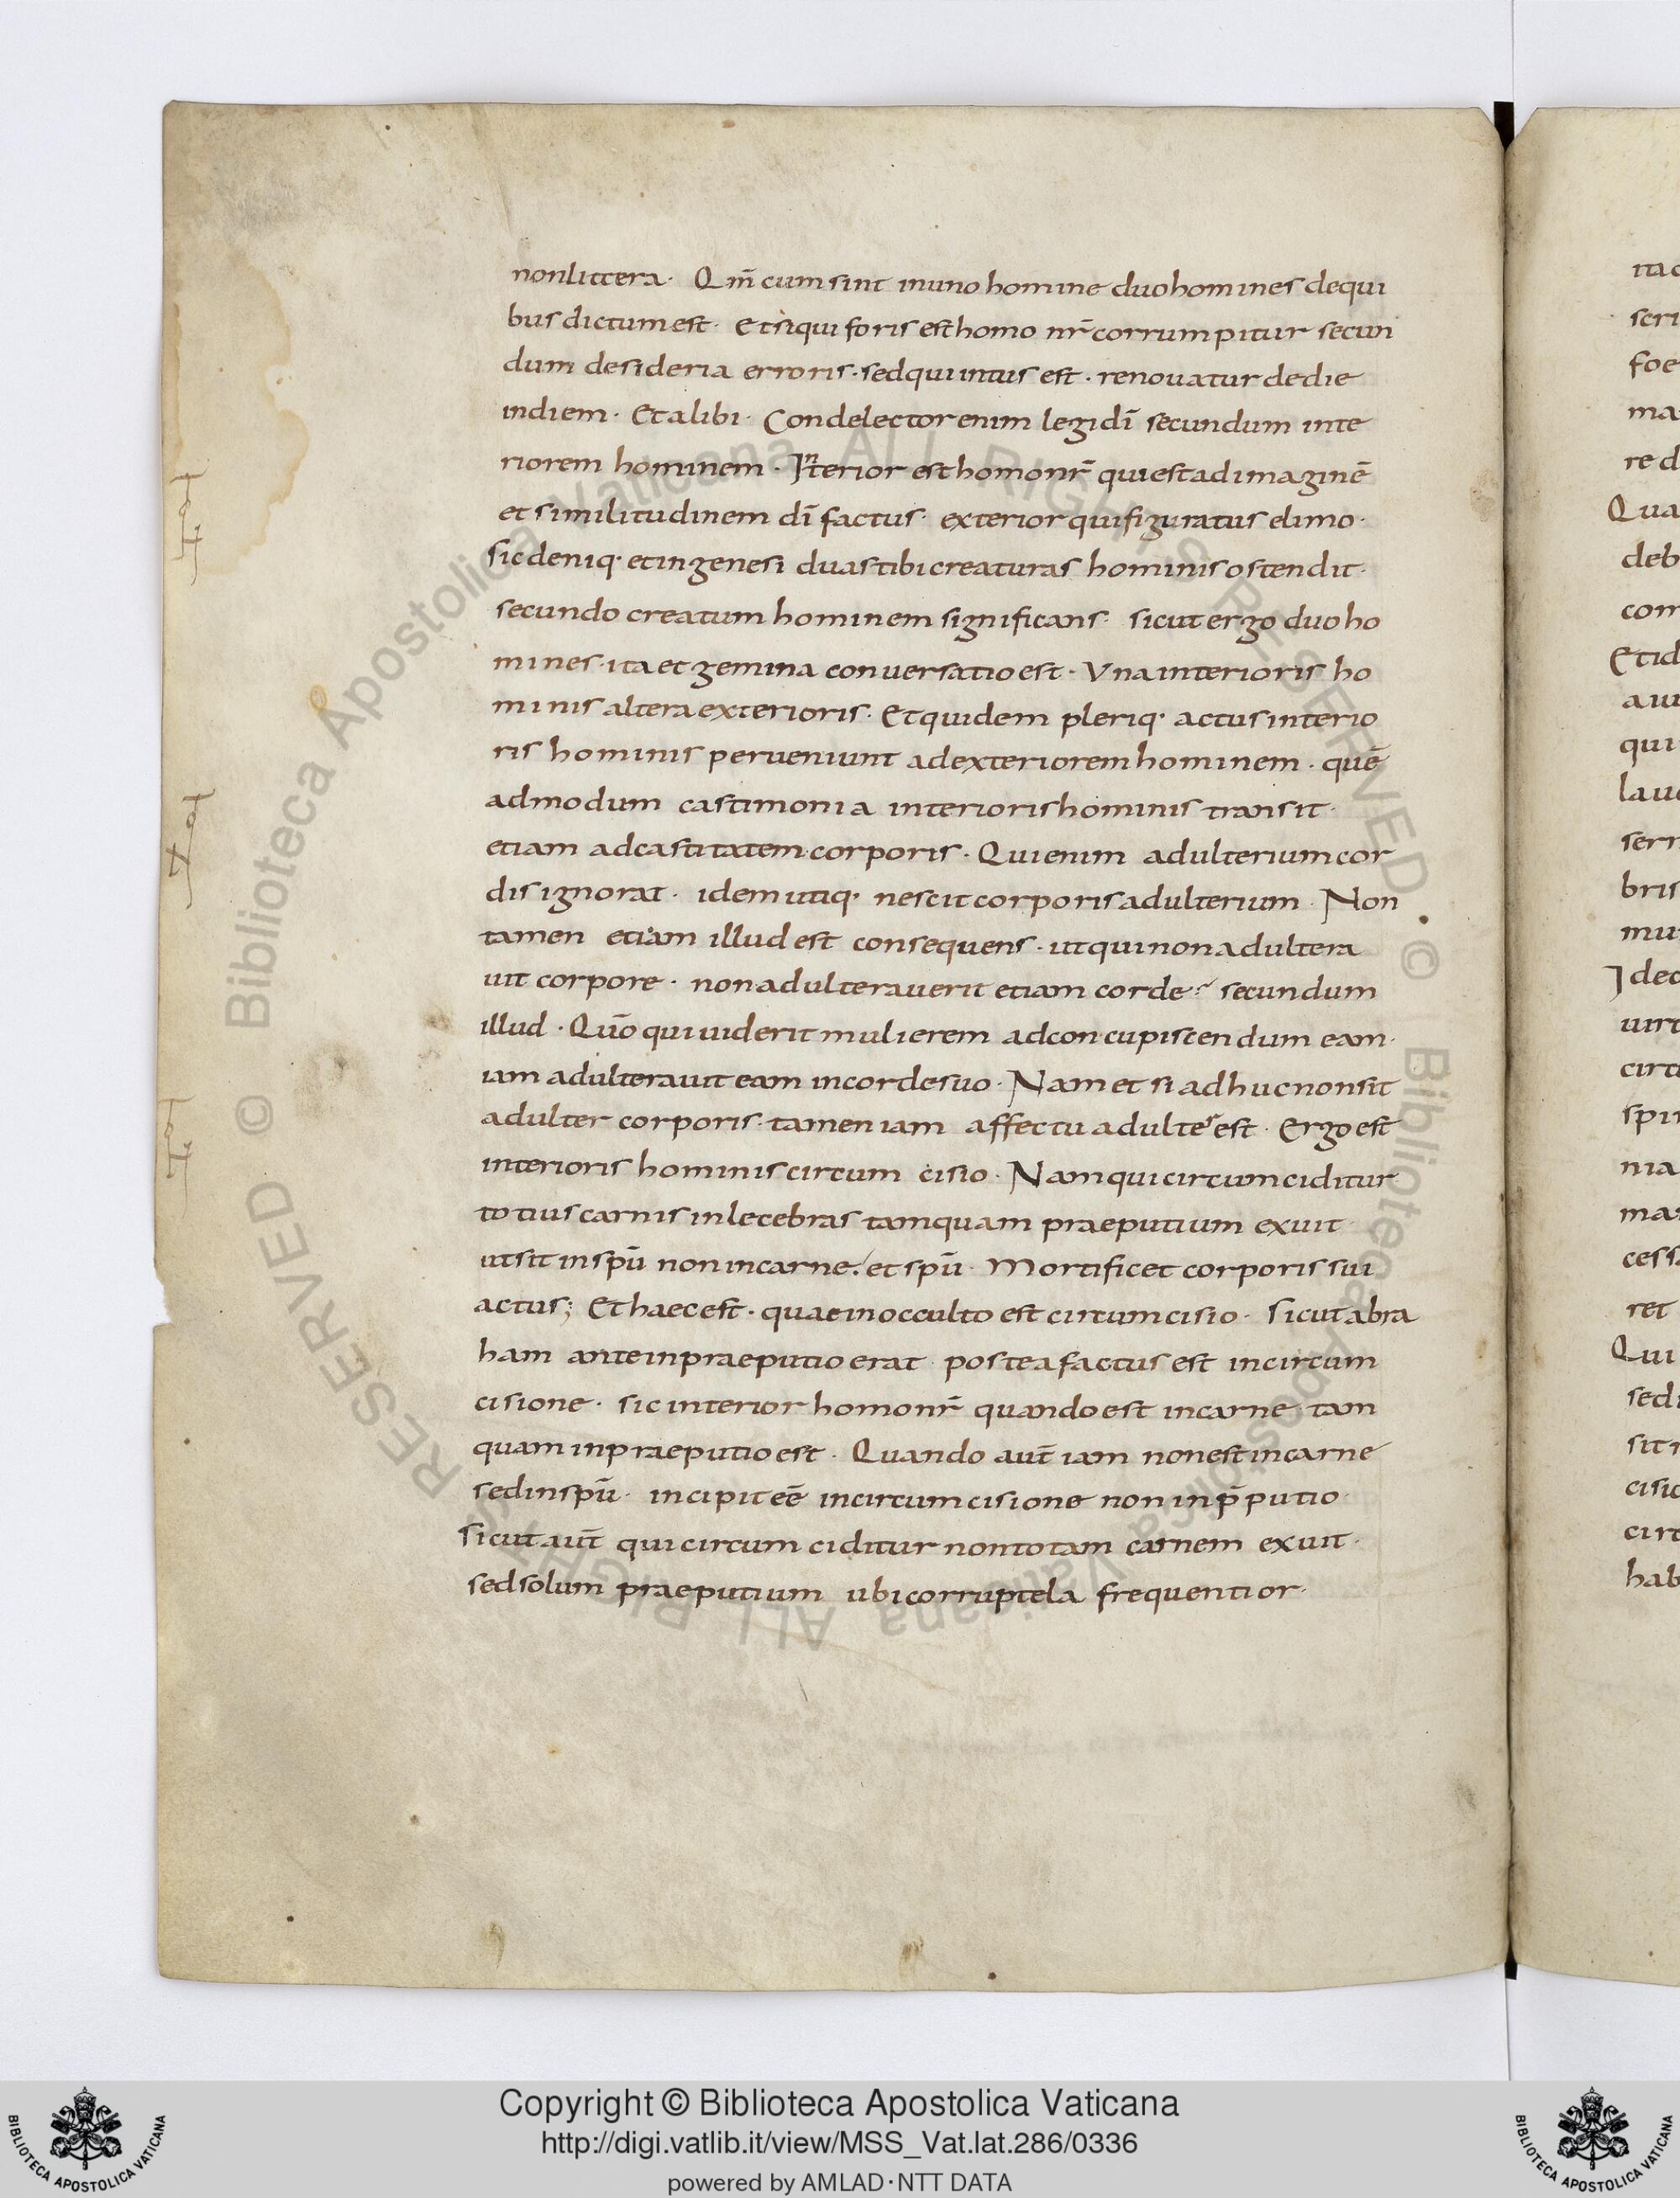 non littera · Qm̄ cum sint in uno homine duo homines de qui
bus dictum est · Et si qui foris est homo nr̄ corrumpitur secun
dum desideria erroris · sed qui intus est · renouatur de die
in diem · Et alibi · Condelector enim legi dī secundum inte
riorem hominem · Interior est homo nr̄ qui est ad imaginē
et similitudinem dī factus · exterior qui figuratus e limo ·
sic deniq· et in genesi duas tibi creaturas hominis ostendit ·
secundo creatum hominem significans · sicut ergo duo ho
mines · ita et gemina conuersatio est · Una interioris ho
minis altera exterioris · Et quidem pleriq· actus interio
ris hominis perueniunt ad exteriorem hominem · quē
admodum castimonia interioris hominis transit ·
etiam ad castitatem corporis · Qui enim adulterium cor
dis ignorat · idem utiq· nescit corporis adulterium · Non
tamen etiam illud est consequens · ut qui non adultera
uit corpore · non adulterauerit etiam corde · secundum
illud · Quō qui uiderit mulierem ad concupiscendum eam ·
iam adulterauit eam in corde suo · Nam et si adhuc non sit
adulter corporis · tamen iam affectu adulter est · Ergo est
interioris hominis circumcisio · Nam qui circumciditur
totius carnis inlecebras tamquam praeputium exuit
ut sit in spū non in carne · et spū · Mortificet corporis sui
actus ; Et haec est · quae in occulto est circumcisio · sicut abra
ham ante in praeputio erat · postea factus est in circum
cisione · sic interior homo nr̄ quando est in carne · tam
quam in praeputio est · Quando aut̄ iam non est in carne
sed in spū · incipit eē in circumcisione non in p̄putio ·
sicut aut̄ qui circumciditur non totam carnem exuit ·
sed solum praeputium ubi corruptela frequentior ·
Copyright © Biblioteca Apostolica Vaticana
http://digi.vatlib.it/view/MSS_Vat.lat.286/0336
powered by AMLAD · NTT DATA